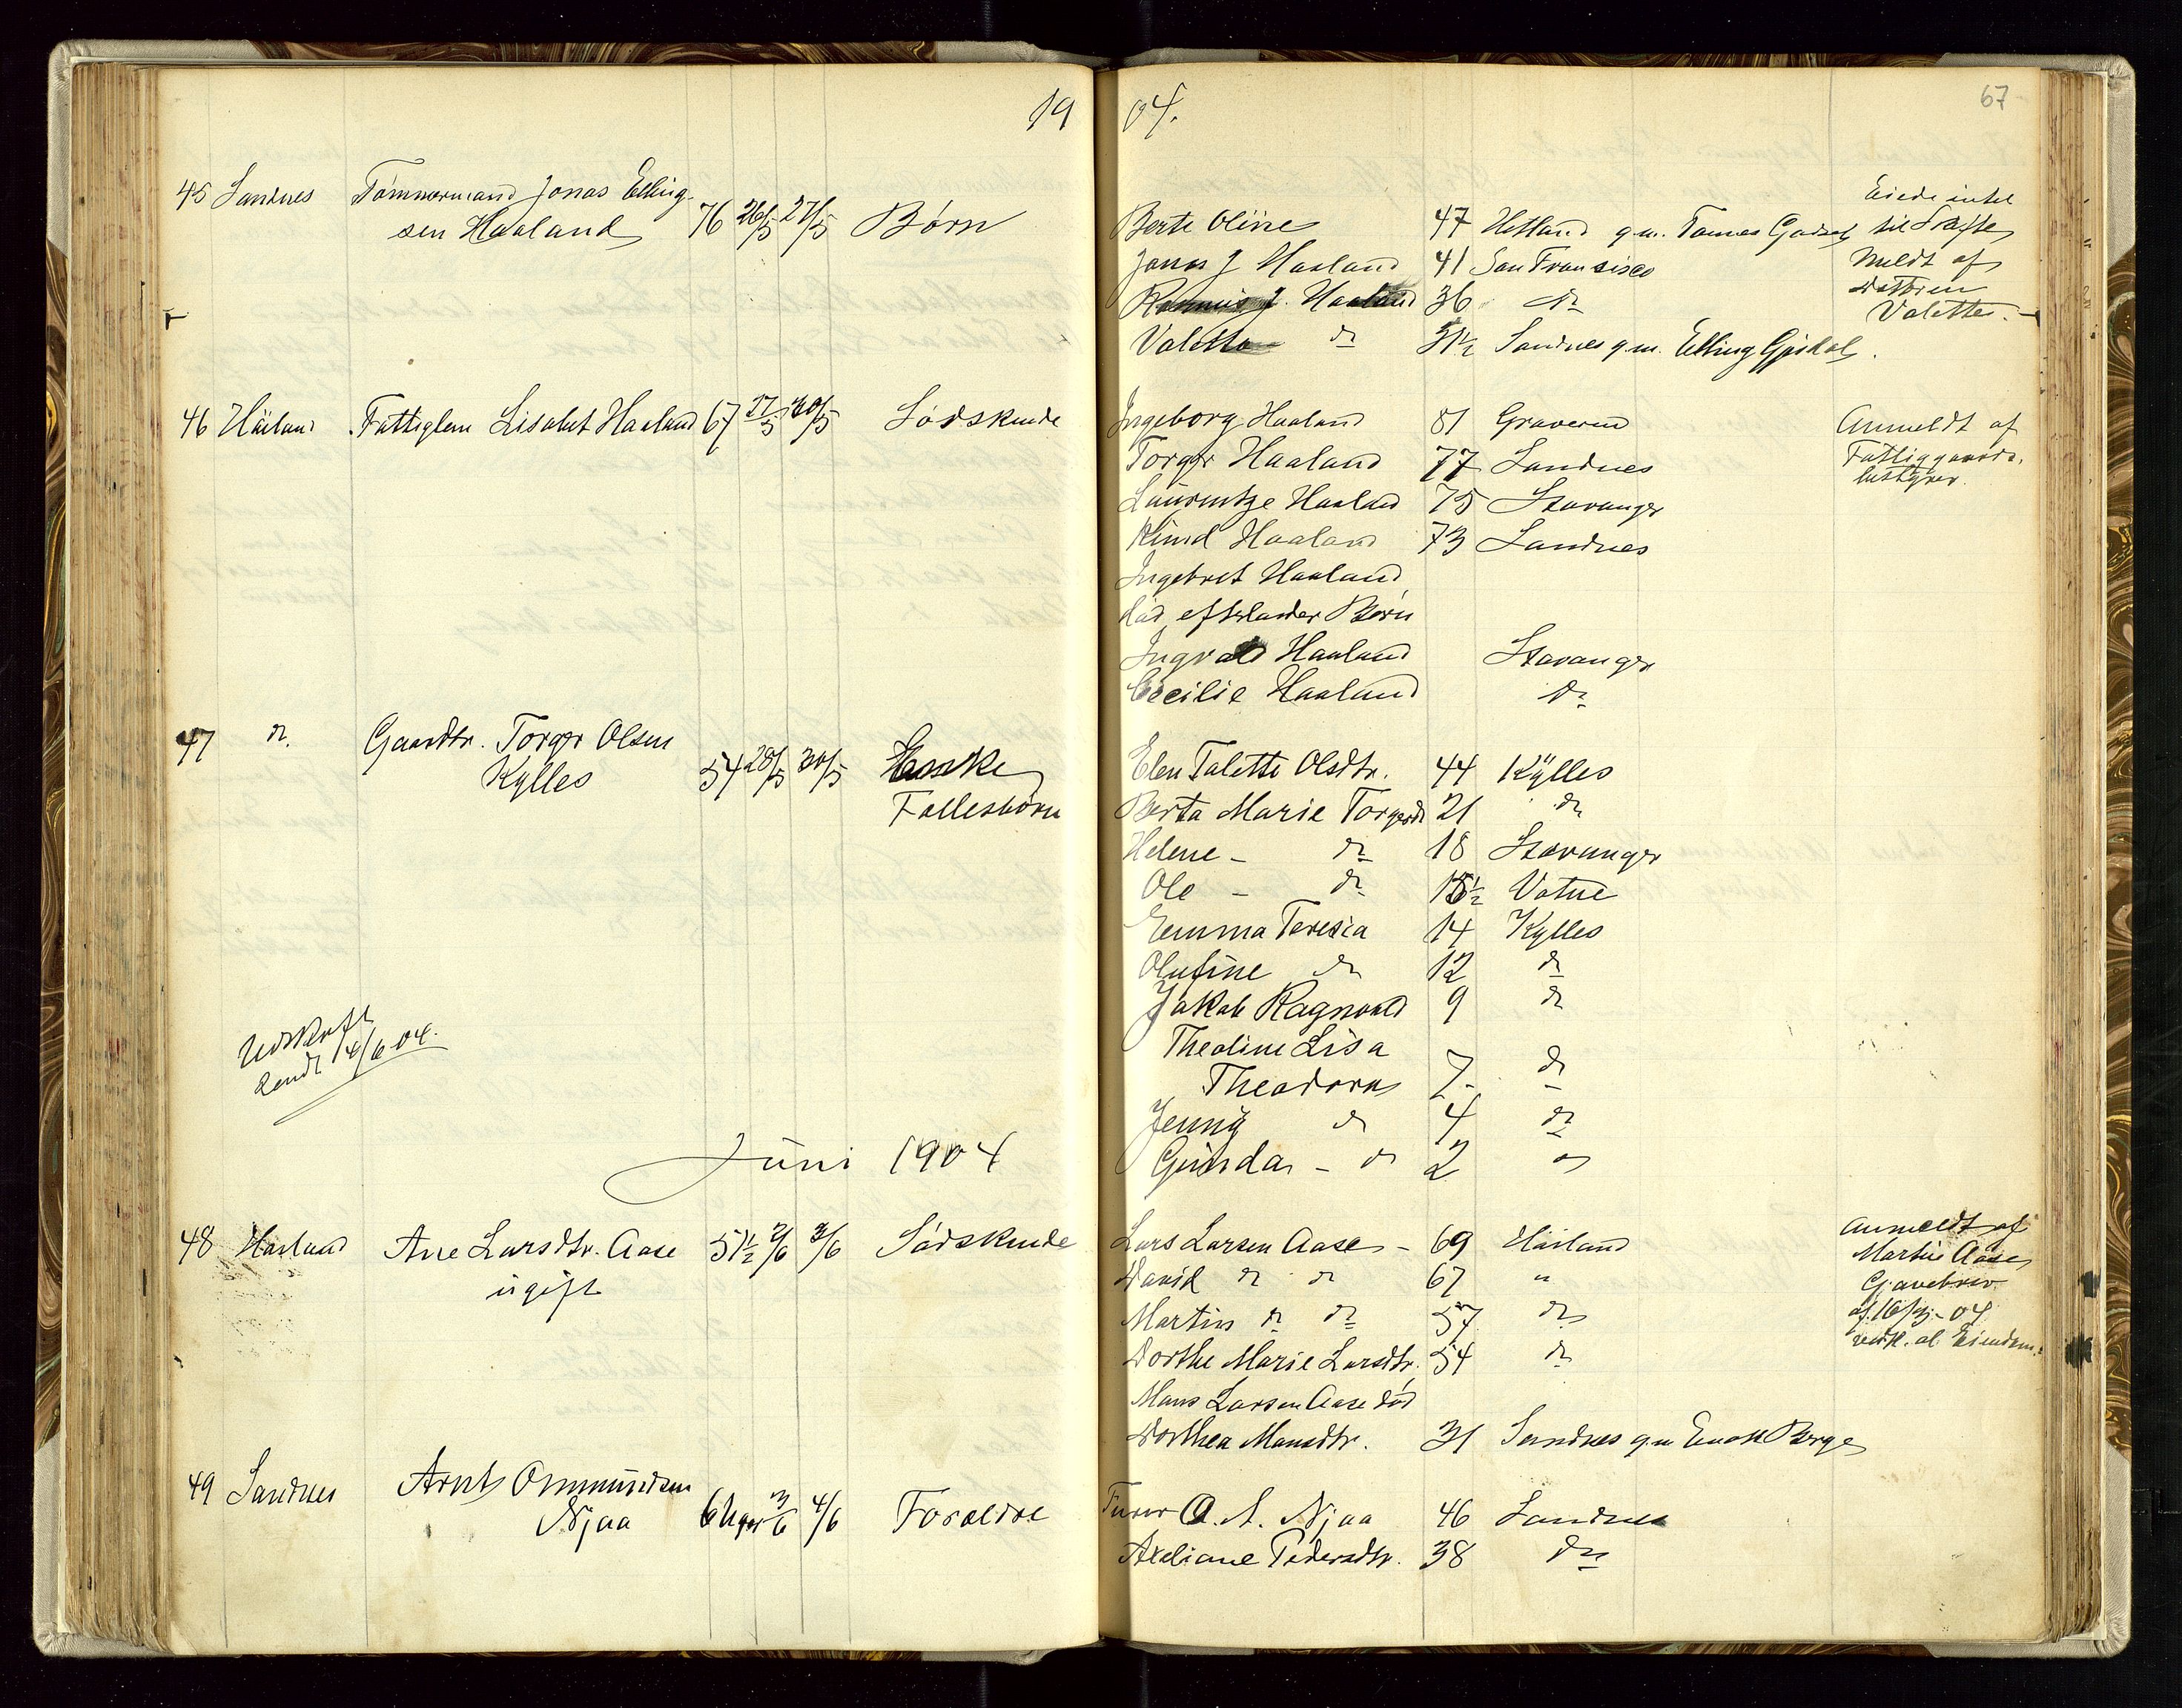 19
04.
67
45 Sandnes Tömmermand Jonas Elling-
sen Haaland 76 26/5 27/5 Børn
Berte Oline 47 Hetland g.m. Tønnes
Eiede intet
til Skifte
Jonas J Haaland 41 San Fransisco
Meldt af
Rasmus J. Haaland 36 do
datteren
Valette do 31½ Sandnes g.m. Elling Gjesdal.
Valette.
46 Håland Fattiglem Lisabet Haaland 67 27/5 30/5 Sødskende
Ingeborg Haaland 81 Graverend
Torger Haaland 77 Sandnes
Laurentze Haaland 75 Stavanger
Knud Haaland 73 Sandnes
Ingebret Haaland
död, efterlader Børn
Ingvald Haaland Stavanger
Cecilie Haaland do
Anmeldt af
Fattiggaards.
bestyrer.
47 do. Gaardbr. Torger Olsen
Kylles 54 28/5 30/5 Enke
Fællesbørn
Elen Talette Olsdtr. 44 Kylles
Berta Marie Torgersd 21 do
Helene - do 18 Stavanger
Ole - do 15½ Vatne
Emma Teresia 14 Kylles
Olufine do 12 do
Jakob Ragnvald 9 do
Theoline Lisa
Theodora 7. do
Jenny do 4 do
Gunda - do 2 do
Udskrift
sendt 14/6 04.
Juni 1904
48 Haaland Ane Larsdtr. Aase 51½ 2/6 3/6 Sødskende
ugift
Lars Larsen Aase - 69 Håland
David do do 67 "
Martin do do 57 do
Dorthe Marie Larsdtr. 54 do
Mons Larsen Aase död
Dorthea Monsdtr. 31 Sandnes g.m Enok Berge
Anmeldt af
Martin Aase
Gjavebrev
af 16/3 - 04
vedk. al Eiendom.
49 Sandnes Arnt Ommundsen
Njaa 6 Uger 3/6 4/6 Forældre
Furer O. A. Njaa 46 Sandnes
Axeliane Pedersdtr. 38 do